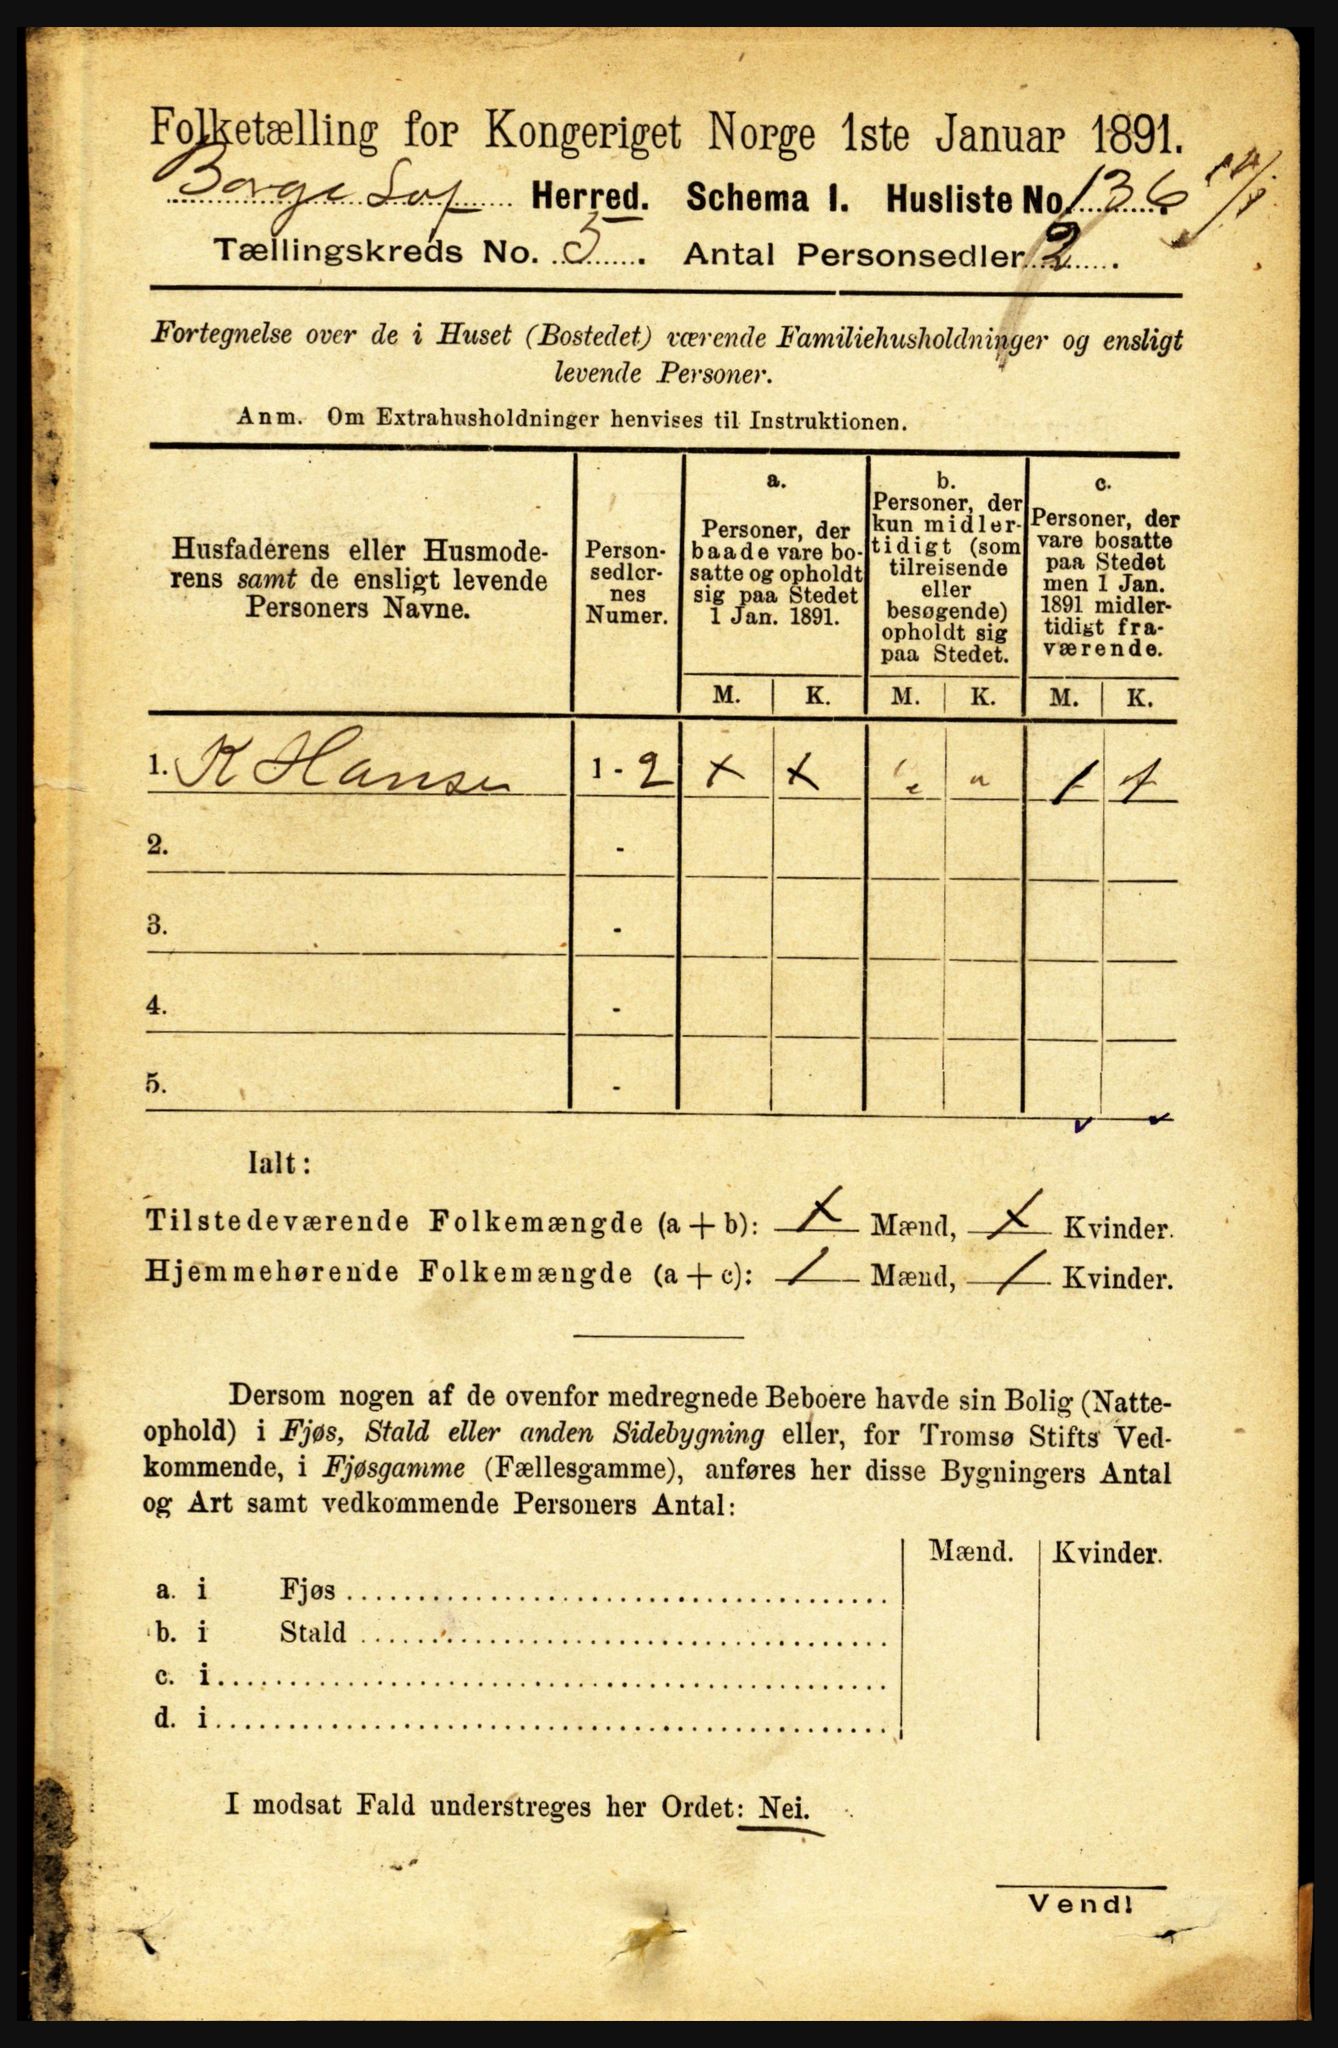 Folketælling for Kongeriget Norge 1ste Januar 1891.
Borge Lof Herred. Schema I. Husliste No. 136
Tællingskreds No. 5. Antal Personsedler 2.
Fortegnelse over de i Huset (Bostedet) værende Familiehusholdninger og ensligt
levende Personer.
Anm. Om Extrahusholdninger henvises til Instruktionen.
Husfaderens eller Husmode-
rens samt de ensligt levende
Personers Navne.
Person-
sedler-
nes
Numer.
a.
Personer, der
baade vare bo-
satte og opholdt
sig paa Stedet
1 Jan. 1891.
b.
Personer, der
kun midler-
tidigt (som
tilreisende
eller
besøgende)
opholdt sig
paa Stedet.
c.
Personer, der
vare bosatte
paa Stedet
men 1 Jan.
1891 midler-
tidigt fra-
værende.
M. K. M. K. M. K.
1. K Hansen 1 - 2 x x " " 1 1
2. -
3. -
4. -
5. -
Ialt:
Tilstedeværende Folkemængde (a + b): x Mænd, x Kvinder.
Hjemmehørende Folkemængde (a + c): 1 Mænd, 1 Kvinder.
Dersom nogen af de ovenfor medregnede Beboere havde sin Bolig (Natte-
ophold) i Fjøs, Stald eller anden Sidebygning eller, for Tromsø Stifts Ved-
kommende, i Fjøsgamme (Fællesgamme), anføres her disse Bygningers Antal
og Art samt vedkommende Personers Antal:
Mænd. Kvinder.
a. i Fjøs
b. i Stald
c. i
d. i
I modsat Fald understreges her Ordet: Nei.
Vend!